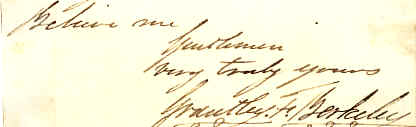 Believe me
Gentlemen
very truly yours
Grantley F. Berkeley